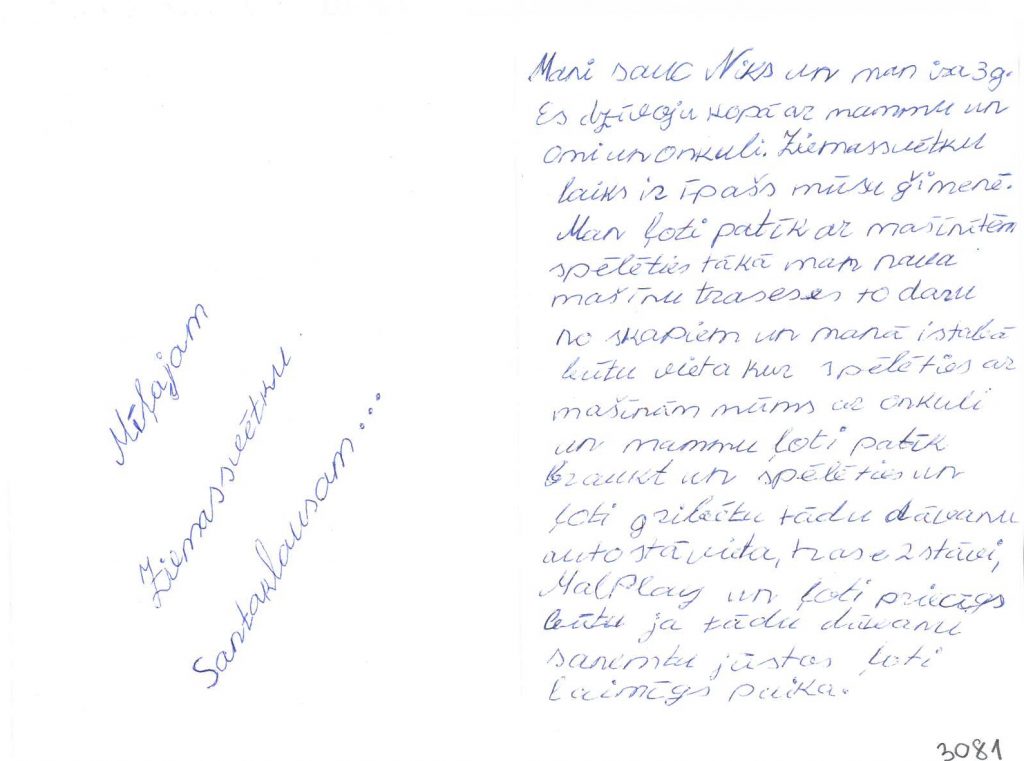 Mīļajam
Ziemassvētku
Santaklausam...
Mani sauc Niks un man ir 3g.
Es dzīvoju kopā ar mammu un
omi un onkuli. Ziemassvētku
laiks ir īpašs mūsu ģimenē.
Man ļoti patīk ar mašīnītēm
spēlēties tākā man nava
mašīnu trases es to daru
no skapiem un manā istabā
būtu vieta kur spēlēties ar
mašīnām mūms ar onkuli
un mammu ļoti patīk
braukt un spēlēties un
ļoti gribētu tādu dāvanu
autostāvvieta, trase 2 stāvi,
MalPlay un ļoti priecīgs
būtu ja tādu dāvanu
saņemtu jūstos ļoti
laimīgs puika.
3081